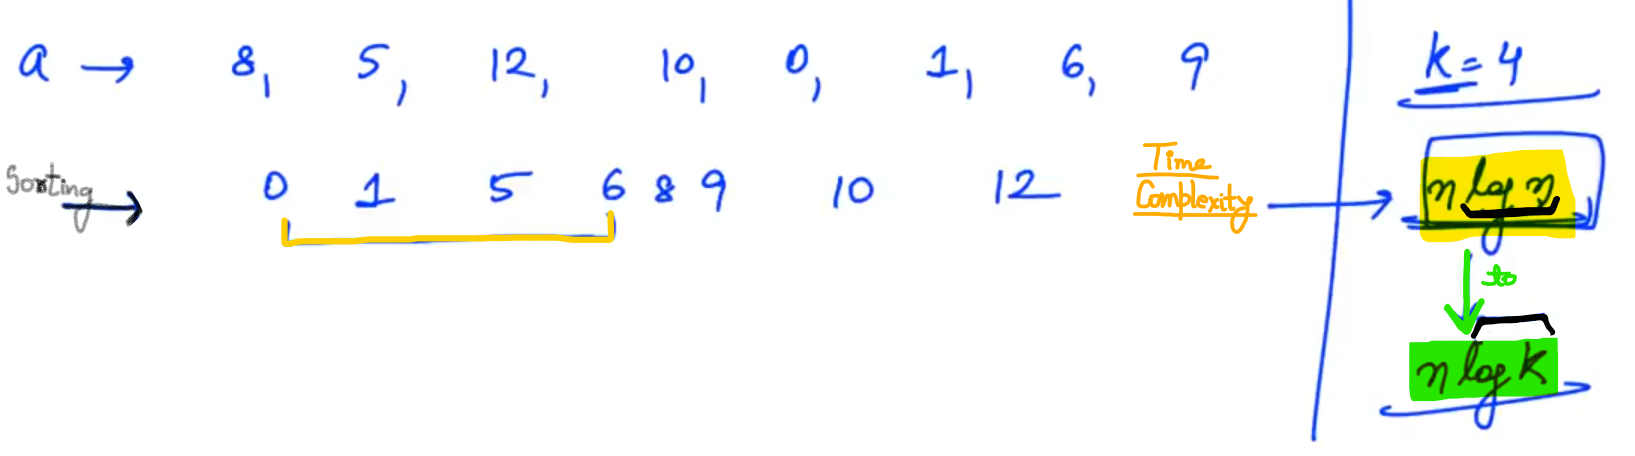 a → 8, 5, 12, 10, 0, 1, 6, 9
k = 4
Sorting → 0 1 5 6 8 9 10 12
Time Complexity → n log n
to
n log k